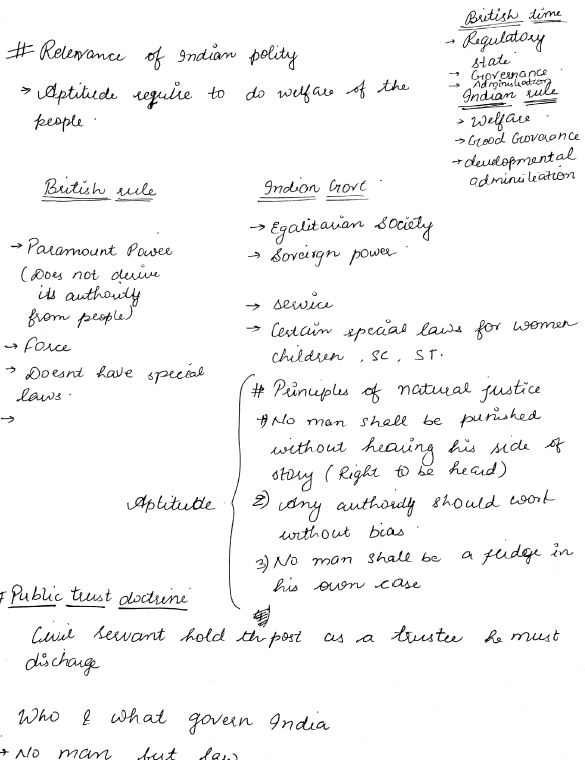 # Relenvance of Indian polity
→ Aptitude require to do welfare of the
people.
British time
→ Regulatory
state
→ Governance
→ Administration
Indian rule
→ Welfare
→ Good Governance
→ developmental
administration
British rule
→ Paramount Power
(Does not derive
its authority
from people)
→ Force
→ Doesnt have special
laws.
→
Indian Govt
→ Egalitarian Society
→ Soveirgn power
→ service
→ Certain special laws for women
children, SC, ST.
Aptitude
# Principles of natural justice
1) No man shall be punished
without hearing his side of
story (Right to be heard)
2) Any authority should work
without bias.
3) No man shall be a judge in
his own case
# Public trust doctrine
Civil Servant hold th post as a trustee he must
discharge
Who & what govern India
→ No man but law